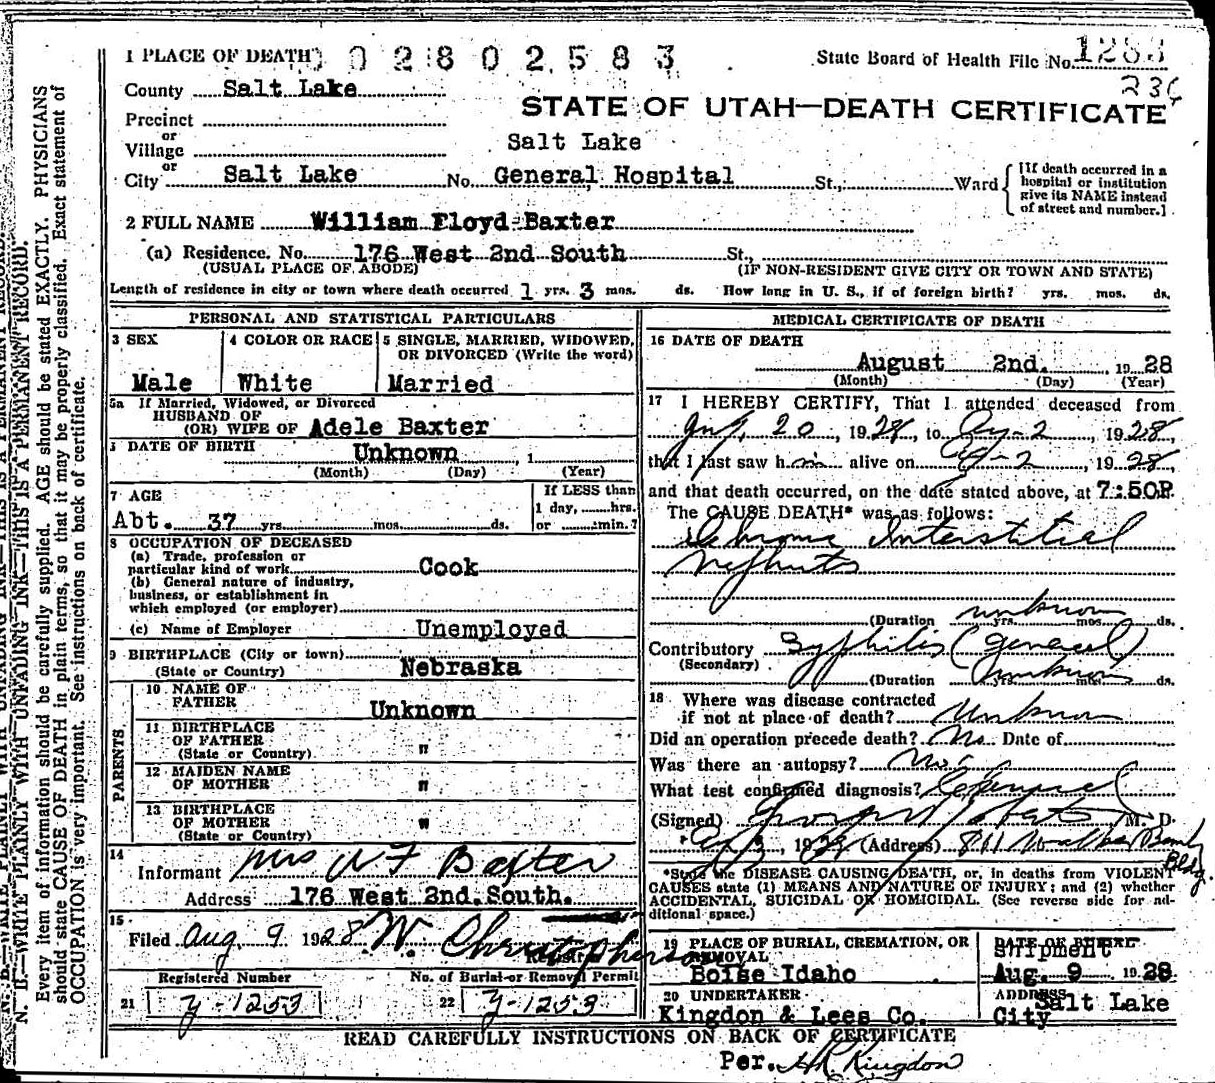 1 PLACE OF DEATH 0 2 8 0 2 5 8 3 State Board of Health File No. 1253
236
County Salt Lake
STATE OF UTAH—DEATH CERTIFICATE
Precinct
or
Village
Salt Lake
or
City Salt Lake No. General Hospital St., Ward
[If death occurred in a hospital or institution give its NAME instead of street and number.]
2 FULL NAME William Floyd Baxter
(a) Residence. No. 176 West 2nd South St.,
(USUAL PLACE OF ABODE) (IF NON-RESIDENT GIVE CITY OR TOWN AND STATE)
Length of residence in city or town where death occurred 1 yrs. 3 mos. ds. How long in U. S., if of foreign birth? yrs. mos. ds.
PERSONAL AND STATISTICAL PARTICULARS
3 SEX
Male
4 COLOR OR RACE
White
5 SINGLE, MARRIED, WIDOWED, OR DIVORCED (Write the word)
Married
5a If Married, Widowed, or Divorced
HUSBAND OF
(OR) WIFE OF Adele Baxter
DATE OF BIRTH Unknown , 1
(Month) (Day) (Year)
7 AGE
Abt. 37 yrs. mos. ds.
If LESS than
1 day, hrs.
or min.?
8 OCCUPATION OF DECEASED
(a) Trade, profession or
particular kind of work Cook
(b) General nature of industry,
business, or establishment in
which employed (or employer)
(c) Name of Employer Unemployed
9 BIRTHPLACE (City or town)
(State or Country) Nebraska
PARENTS
10 NAME OF
FATHER Unknown
11 BIRTHPLACE
OF FATHER "
(State or Country)
12 MAIDEN NAME
OF MOTHER "
13 BIRTHPLACE
OF MOTHER "
(State or Country)
14
Informant Mrs W F Baxter
Address 176 West 2nd. South.
15
Filed Aug. 9 1928 W. Christopherson
Registrar
Registered Number No. of Burial or Removal Permit
21 Y-1253 22 Y-1253
MEDICAL CERTIFICATE OF DEATH
16 DATE OF DEATH
August 2nd. , 1928
(Month) (Day) (Year)
17 I HEREBY CERTIFY, That I attended deceased from
July 20, 1928, to Aug-2, 1928,
that I last saw him alive on Aug-2, 1928,
and that death occurred, on the date stated above, at 7:50P.
The CAUSE DEATH* was as follows:
Chronic Interstitial
Nephritis
(Duration unknown yrs. mos. ds.
Contributory Syphilis (general)
(Secondary)
(Duration Unknown yrs. mos. ds.
18 Where was disease contracted
if not at place of death? Unknown
Did an operation precede death? No Date of
Was there an autopsy? No
What test confirmed diagnosis? Clinical
(Signed) M. D.
Aug 3, 1928 (Address) 811 Walker Bank
Bldg.
*State the DISEASE CAUSING DEATH, or, in deaths from VIOLENT
CAUSES state (1) MEANS AND NATURE OF INJURY; and (2) whether
ACCIDENTAL, SUICIDAL OR HOMICIDAL. (See reverse side for ad-
ditional space.)
19 PLACE OF BURIAL, CREMATION, OR
REMOVAL
Boise Idaho
DATE OF BURIAL
Shipment
Aug. 9 1928
20 UNDERTAKER
Kingdon & Lees Co.
ADDRESS
Salt Lake
City
READ CAREFULLY INSTRUCTIONS ON BACK OF CERTIFICATE
Per. Kingdon
N. B.—WRITE PLAINLY WITH UNFADING INK—THIS IS A PERMANENT RECORD.
Every item of information should be carefully supplied. AGE should be stated EXACTLY. PHYSICIANS
should state CAUSE OF DEATH in plain terms, so that it may be properly classified. Exact statement of
OCCUPATION is very important. See instructions on back of certificate.